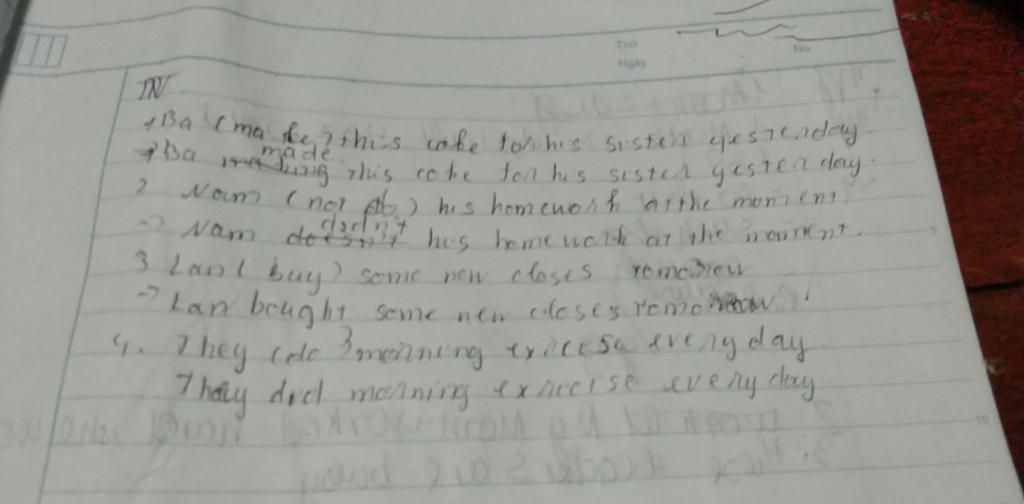 Thứ
Ngày
No.
IV.
1 Ba (make) this cake for his sister yesterday
→ Ba made this cake for his sister yesterday.
2 Nam (not do) his homework at the moment
→ Nam didn't his homework at the moment.
3 Lan (buy) some new closes tomorow
→ Lan bought some new closes tomorrow.
4. They (do) morning exrcise every day.
They did morning exrecise every day